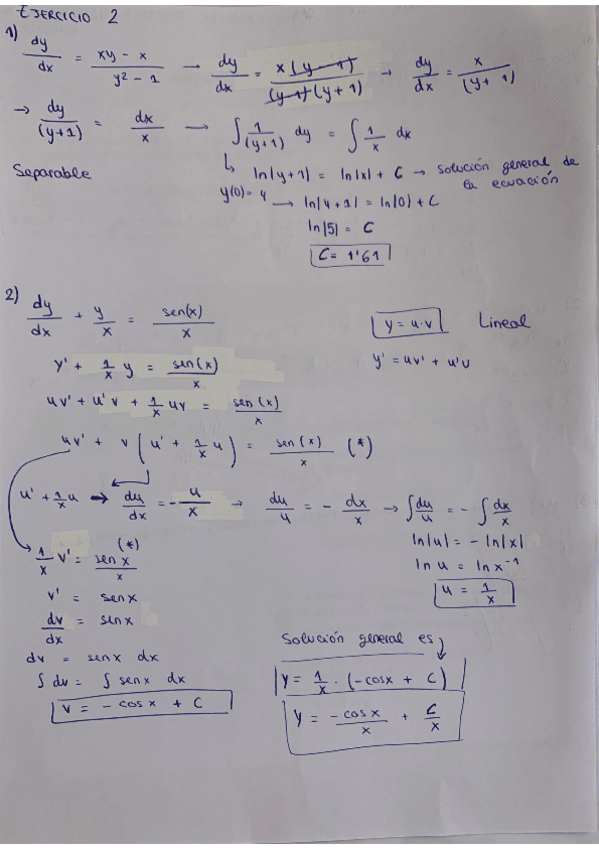 EJERCICIO 2
1) dy/dx = xy - x / y² - 1 → dy/dx = x (y - 1) / (y-1) (y + 1) → dy/dx = x / (y + 1)
→ dy / (y+1) = dx / x → ∫ 1/(y+1) dy = ∫ 1/x dx
Separable
↳ ln|y+1| = ln|x| + C → solución general de la ecuación
y(0)= 4 → ln|4+1| = ln|0| + C
ln|5| = C
C = 1'61
2) dy/dx + y/x = sen(x)/x
y = u·v Lineal
y' + 1/x y = sen(x)/x
y' = uv' + u'v
uv' + u'v + 1/x uv = sen(x)/x
uv' + v (u' + 1/x u) = sen(x)/x (*)
u' + 1/x u → du/dx = - u/x → du/u = - dx/x → ∫ du/u = - ∫ dx/x
ln|u| = - ln|x|
ln u = ln x⁻¹
u = 1/x
(*)
1/x v' = sen x/x
v' = sen x
dv/dx = sen x
dv = sen x dx
∫ dv = ∫ sen x dx
v = - cos x + C
Solución general es
y = 1/x · (-cosx + C)
y = -cos x/x + C/x